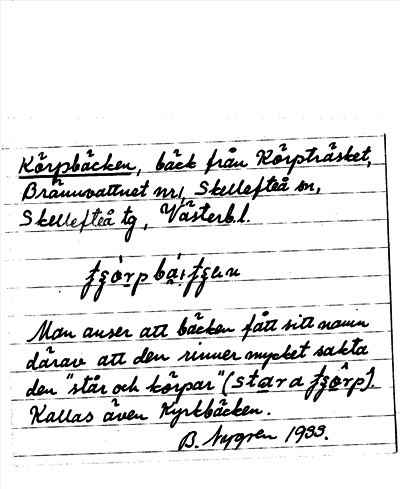 Körpbäcken, bäck från Körpträsket,
Brännvattnet nr 1, Skellefteå sn,
Skellefteå tg, Västerb. l.
Man anser att bäcken fått sitt namn
därav att den rinner mycket sakta
den "står och körpar" (
Kallas även Kyrkbäcken.
B. Nygren 1933.